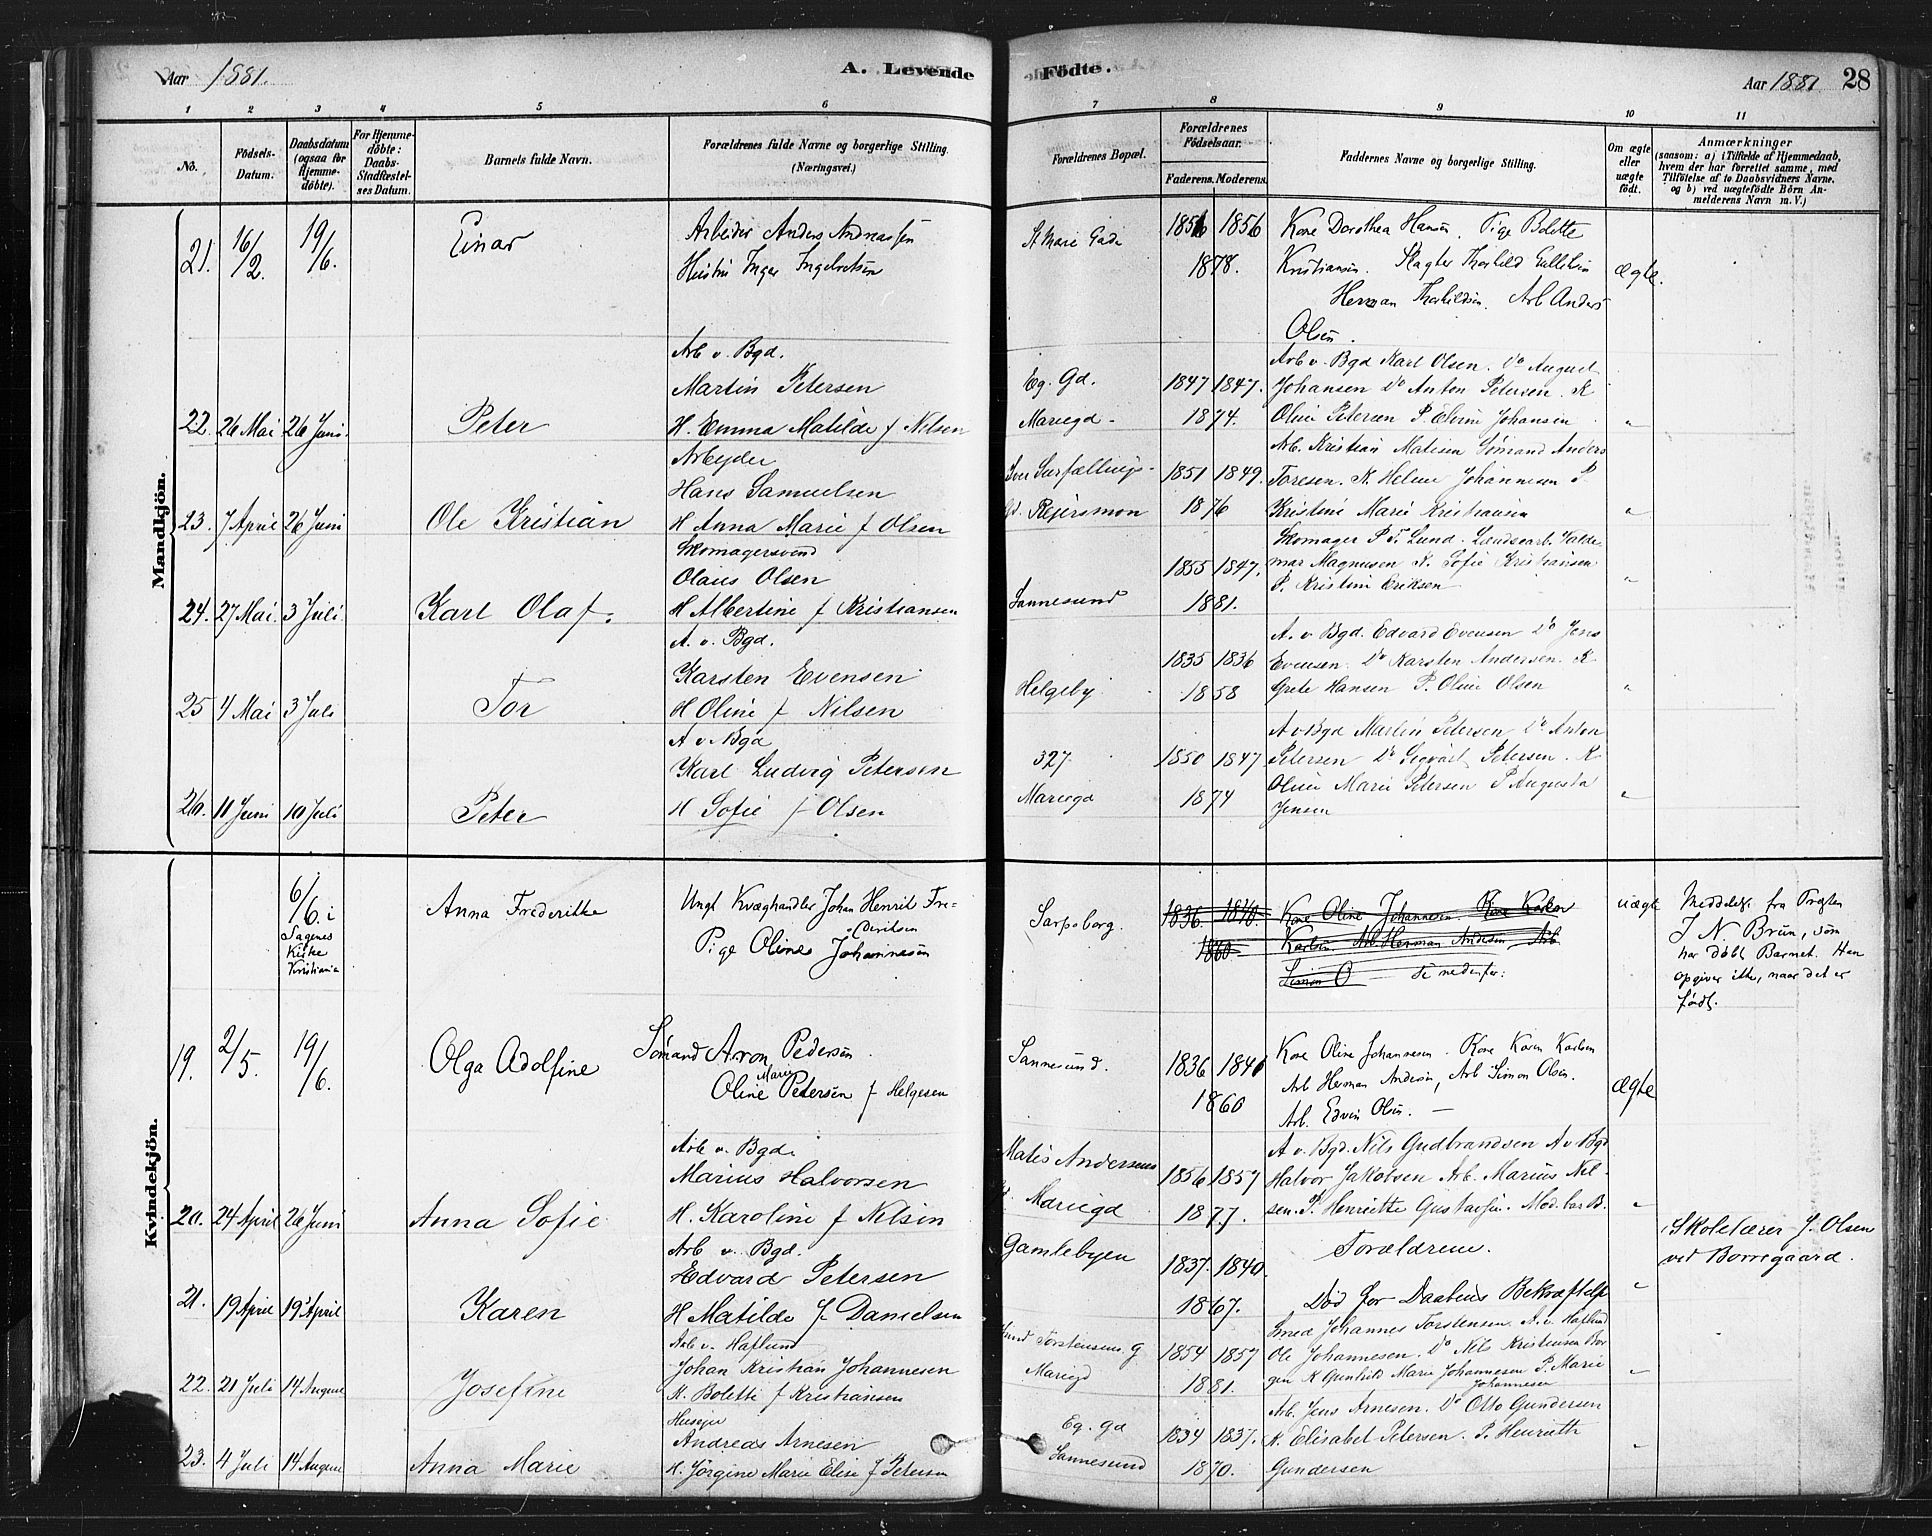 Aar 1881.
A. Levende
Fødte.
Aar 1881
28
1 2 3 4 5 6 7 8 9 10 11
No.
Fødsels-Datum.
Daabsdatum (ogsaa for Hjemme-døbte).
For Hjemme-døbte: Daabs-Stadfæstel-ses Datum.
Barnets fulde Navn.
Forældrenes fulde Navne og borgerlige Stilling.
(Næringsvei.)
Forældrenes Bopæl.
Forældrenes Fødselsaar.
Faderens. Moderens.
Faddernes Navne og borgerlige Stilling.
Om ægte eller uægte født.
Anmærkninger
(saasom: a) i Tilfælde af Hjemmedaab,
hvem der har forrettet samme, med
Tilføielse af to Daabsvidners Navne,
og b) ved uægtefødte Børn An-
melderens Navn m. V.)
Mandkjön.
21. 16/2. 19/6. Einar
Arbeider Anders Andreassen
Hustru Inger Ingebretsen
St. Marie Gade
1856 1856
1878.
Kone Dorothea Hansen. Pige Bolette
Kristiansen. Slagter Thorkild Gulliksen
Herman Thorkildsen. Arb Anders
Olsen.
ægte.
Arb v. Bgd.
Martin Petersen
22. 26 Mai 26 Juni. Peter
H. Emma Matilde f Nilsen
Eg. Gd.
Mariegd.
1847 1847.
1874.
Arb v. Bgd Karl Olsen. Do August
Johansen Do Anton Petersen. K
Oline Petersen P. Elvine Johansen
"
Arbeyder
Hans Samuelsen
23. 7 April 26 Juni Ole Kristian
H Anna Marie f Olsen
Gd. Rejersmon
1851 1849.
1876
Arb. Kristian Matisen Sømand Anders
Toresen. K. Helene Johannesen P
Kristine Marie Kristiansen
"
Skomagersvend
Olaus Olsen
24. 27 Mai. 3 Juli Karl Olaf.
H Albertine f Kristiansen
Sannesund
1855 1847.
1881.
Skomager P. T. Lund. Landsearb. Valde-
mar Magnusen K. Sofie Kristiansen
P. Kristine Eriksen
"
A. v. Bgd.
Karsten Evensen
25 4 Mai 3 Juli Tor
H Oline f Nilsen
Helgeby
1835 1836
1858
A. v Bgd. Edvard Evensen Do Jens
Evensen. Do Karsten Andersen. K
Grete Hansen P. Oline Olsen
"
A v. Bgd
Karl Ludvig Petersen
26. 11 Juni 10 Juli Peter
H Sofie f Olsen
327.
Mariegd
1850 1847
1874
A v Bgd Martin Petersen Do Anton
Petersen Do Sigvart Petersen. K
Oline Marie Petersen P Augusta
Jensen
"
Kvindekjön.
6/6. i
Sagenes
Kirke
Kristiania
Anna Frederikke
Ungk Kvæghandler Johan Henrik Fre-
deriksen
Pige Olines Johannesen
Sarpsborg.
1836 1840.
1860
Kone Oline Johannesen. Kone Karen
Karlsen Arb. Herman Andersen, Arb
Simon O
Se nedenfor:
uægte
Meddelelse fra Præsten
J N. Brun, som
har døbt Barnet. Han
opgiver ikke, naar det er
født.
19. 2/5. 19/6. Olga Adolfine
Sømand Aron Pedersen.
Oline Marie Petersen f Helgesen
Sannesund.
1836 1840
1860
Kone Oline Johannesen. Kone Karen Karlsen
Arb Herman Andersen, Arb Simon Olsen.
Arb. Edvin Olsen. —
ægte
Arb v. Bgd.
Marius Halvorsen
20. 24 April 26 Juni Anna Sofie
H. Karoline f Nilsen
Matis Andersens
Mariegd
1856 1857
1877.
A v. Bgd. Nils Gudbrandsen A v Bgd
Halvor Jakobsen Arb. Marius Nil-
sen. P. Henriette Gustavsen. Mod. bar B.
"
Arb v. Bgd.
Edvard Petersen
21. 19 April 19 April Karen
H Matilde f Danielsen
Gamlebyen
1837. 1840.
1867.
Forældrene.
Død før Daabens Bekræftelse
"
Skolelærer J. Olsen
ved Borregaard.
Arb v Hafslund
Johan Kristian Johannesen
22. 21 Juli 14 August Josefine
K. Bolette f Kristiansen
Torstensens G
Mariegd
1854 1857
1881.
Smed Johannes Torstensen. A. v. Hafslund
Ole Johannesen. Do Nils Kristiansen Bor-
gen K Gunhild Marie Johannesen P. Marie
Johannesen
"
Huseier
Andreas Arnesen
23. 4 Juli 14 August Anna Marie
H. Jørgine Marie Elise f Petersen
Eg. gd
Sannesund
1834 1837.
1870.
Arb. Jens Arnesen. Do Otto Gundersen
K. Elisabet Petersen. P. Henriette
Gundersen
"